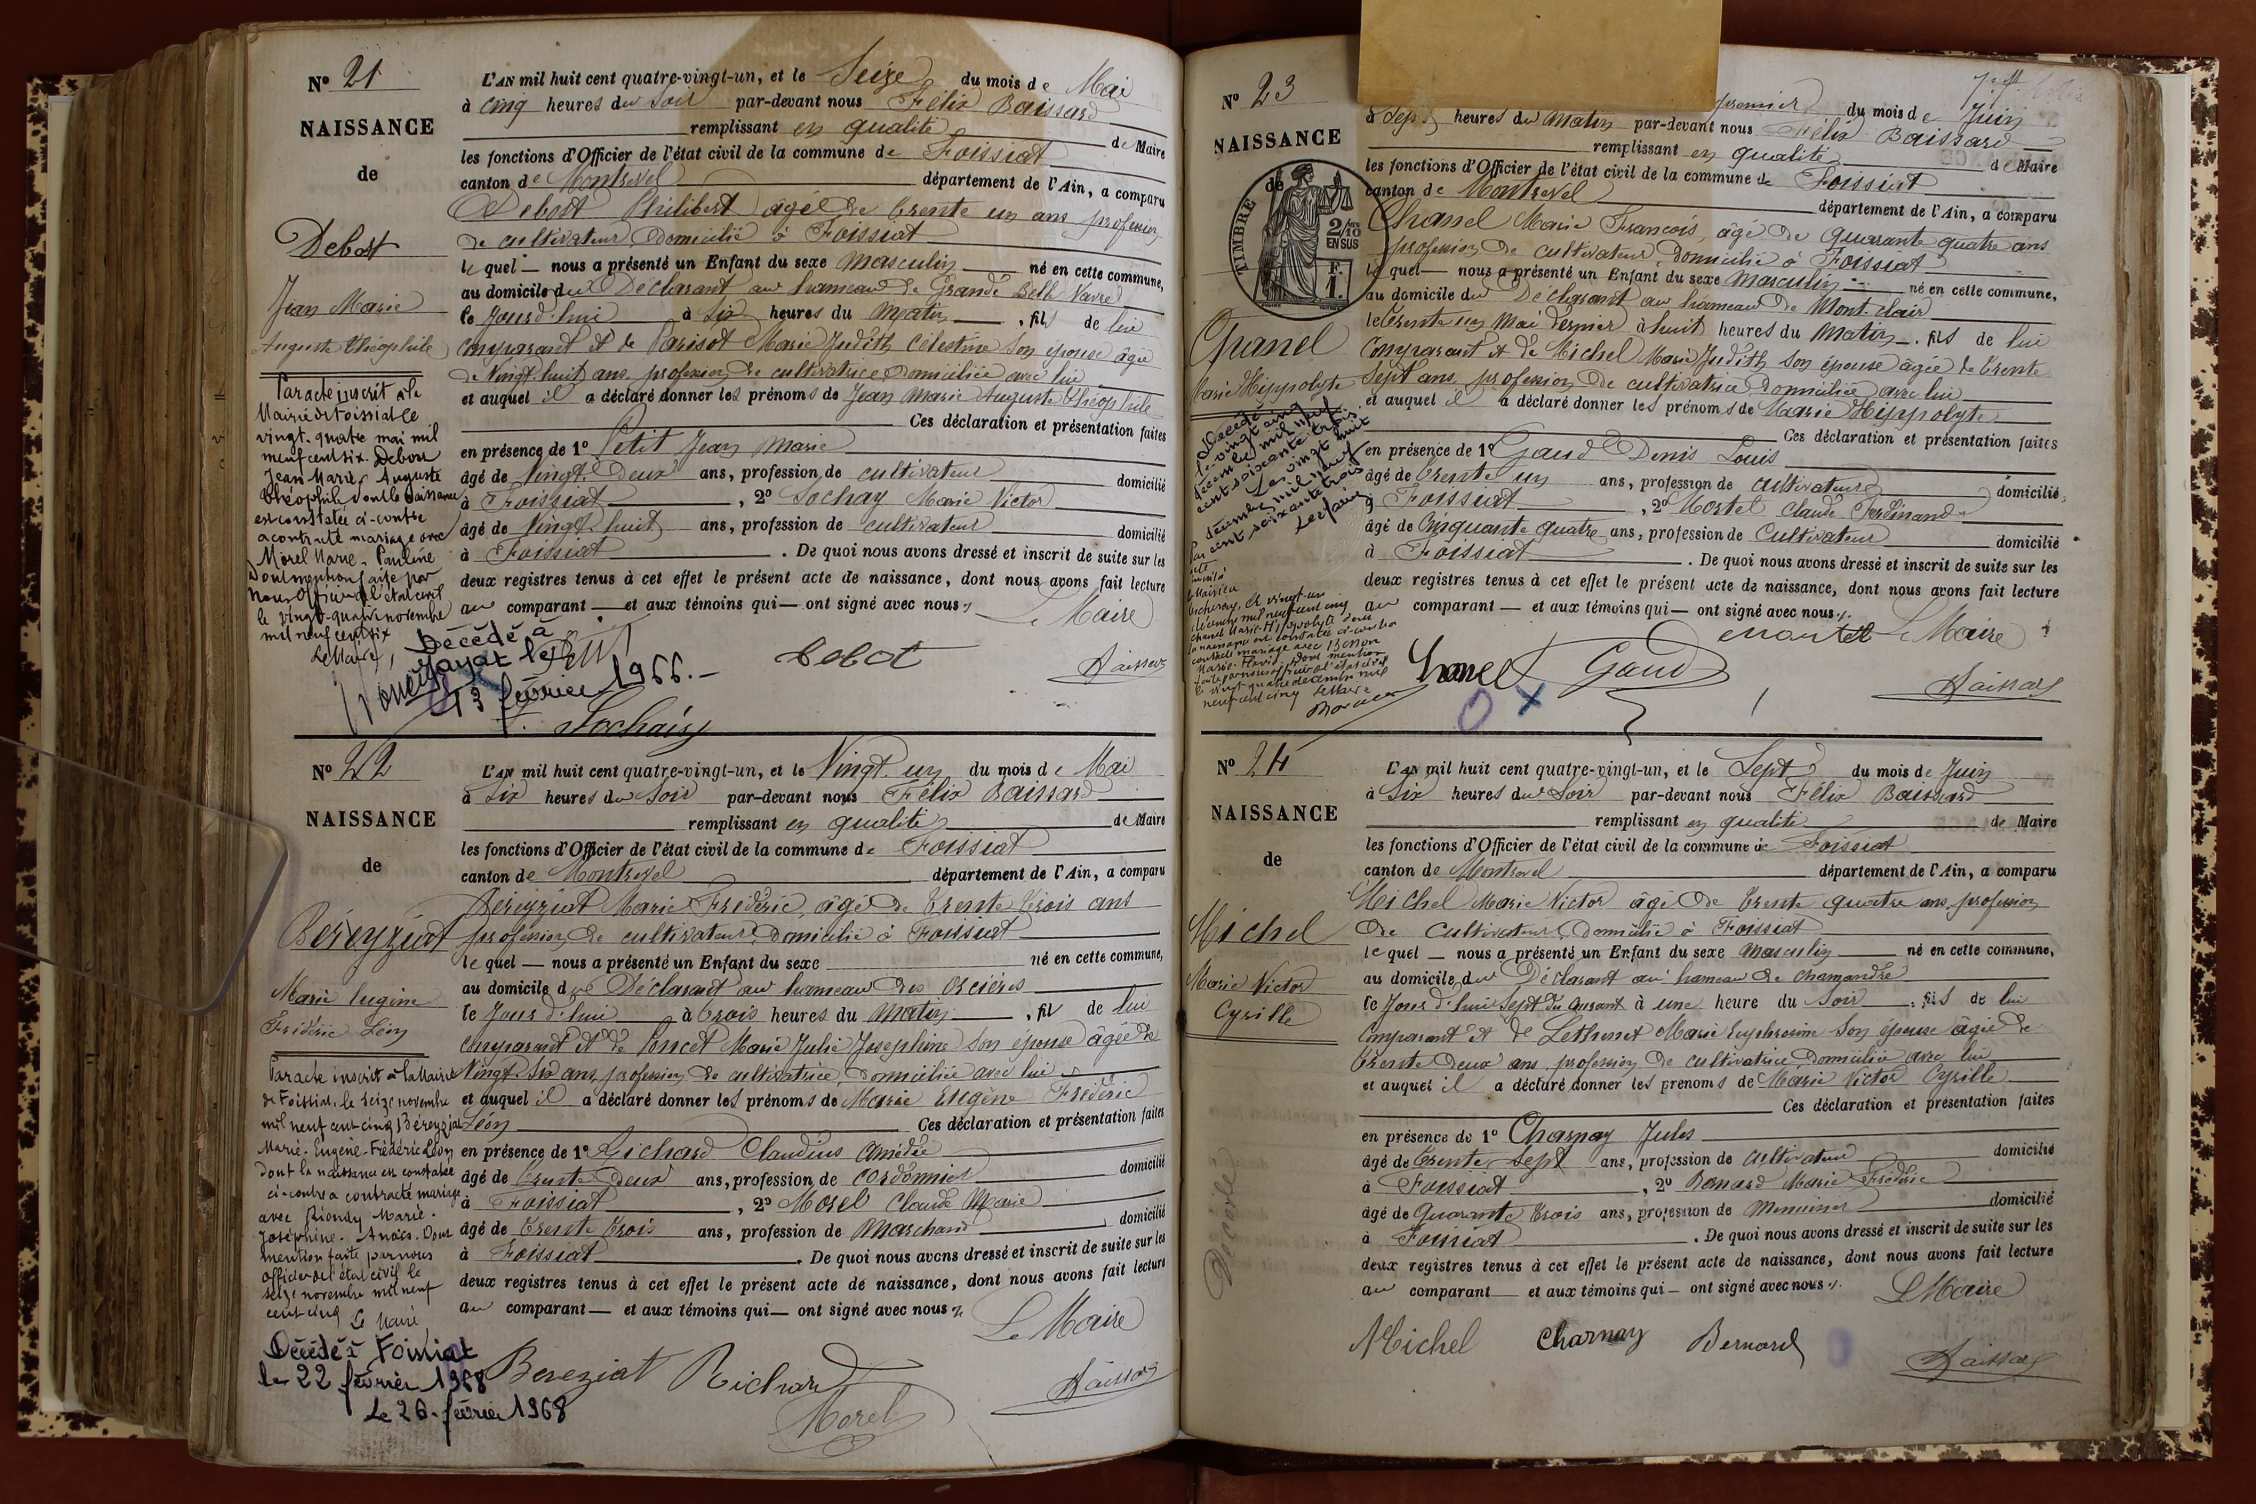 N° 21
NAISSANCE
de
Debost
Jean Marie
Auguste Théophile
Par acte inscrit à la
Mairie de Foissiat le
vingt-quatre mai mil
neuf cent six. Debost
Jean Marie Auguste
Théophile dont la naissance
est constatée ci-contre
a contracté mariage avec
Morel Marie-Pauline
Dont mention faite par
Nous Officier de l'état civil
le vingt-quatre novembre
mil neuf cent six
Le Maire,
Décédé à
Jayat le
13 février 1966.-
L'AN mil huit cent quatre-vingt-un, et le Seize du mois de Mai
à cinq heures du Soir par-devant nous Félix Baissard
remplissant en qualité de Maire
les fonctions d'Officier de l'état civil de la commune de Foissiat
canton de Montrevel département de l'Ain, a comparu
Debost Philibert âgé de trente un ans profession
de cultivateur domicilié à Foissiat
lequel — nous a présenté un Enfant du sexe masculin né en cette commune,
au domicile du Déclarant au hameau de Grande Belle Vavre
le Jourd'hui à Six heures du Matin, fils de lui
Comparant et de Parisot Marie Judith Célestine Son épouse âgée
de Vingt-huit ans profession de cultivatrice domiciliée avec lui
et auquel il a déclaré donner les prénoms de Jean Marie Auguste Théophile
Ces déclaration et présentation faites
en présence de 1° Petit Jean Marie
âgé de Vingt-Deux ans, profession de cultivateur domicilié
à Foissiat, 2° Sochay Marie Victor
âgé de Vingt-huit ans, profession de cultivateur domicilié
à Foissiat. De quoi nous avons dressé et inscrit de suite sur les
deux registres tenus à cet effet le présent acte de naissance, dont nous avons fait lecture
au comparant — et aux témoins qui — ont signé avec nous
Le Maire
Petit
Debost
Baissard
Sochay
N° 22
NAISSANCE
de
Béreyziat
Marie Eugène
Frédéric Léon
Par acte inscrit à la Mairie
de Foissiat, le seize novembre
mil neuf cent cinq Béreyziat
Marie-Eugène-Frédéric Léon
dont la naissance est constatée
ci-contre a contracté mariage
avec Piondy Marie-
Joséphine-Anaïs. Dont
mention faite par nous
officier de l'état civil le
seize novembre mil neuf
cent cinq Le Maire
Décédé à Foissiat
le 22 février 1968
Le 26 février 1968
L'AN mil huit cent quatre-vingt-un, et le Vingt un du mois de Mai
à Six heures du Soir par-devant nous Félix Baissard
remplissant en qualité de Maire
les fonctions d'Officier de l'état civil de la commune de Foissiat
canton de Montrevel département de l'Ain, a comparu
Béreyziat Marie Frédéric, âgé de trente trois ans
profession de cultivateur domicilié à Foissiat
lequel — nous a présenté un Enfant du sexe né en cette commune,
au domicile du Déclarant au hameau des Orcières
le Jour d'hui à trois heures du Matin, fils de lui
Comparant et de Poncet Marie Julie Joséphine Son épouse âgée de
Vingt-Six ans, profession de cultivatrice, domiciliée avec lui
et auquel il a déclaré donner les prénoms de Marie Eugène Frédéric
Léon Ces déclaration et présentation faites
en présence de 1° Richard Claudius Amédée
âgé de trente deux ans, profession de cordonnier domicilié
à Foissiat, 2° Morel Claude Marie
âgé de trente trois ans, profession de Marchand domicilié
à Foissiat. De quoi nous avons dressé et inscrit de suite sur les
deux registres tenus à cet effet le présent acte de naissance, dont nous avons fait lecture
au comparant — et aux témoins qui — ont signé avec nous
Le Maire
Bereziat Richard
Morel
Baissard
N° 23
NAISSANCE
de
TIMBRE
2/10 EN SUS
F. 1.
Chanel
Marie Hippolyte
Décédé
le vingt cinq
décembre mil neuf
cent soixante trois.
Le vingt huit
décembre mil neuf
cent soixante trois
Le Maire
Par acte
inscrit à
la Mairie
le vingt-un
décembre mil neuf cent cinq
Chanel Marie-Hippolyte dont
la naissance est constatée ci-contre
a contracté mariage avec
Marie-Flavie dont mention
faite par nous officier de l'état civil
le vingt quatre décembre mil
neuf cent cinq Le Maire
premier du mois de Juin
à Sept heures du Matin par-devant nous Félix Baissard
remplissant en qualité de Maire
les fonctions d'Officier de l'état civil de la commune de Foissiat
canton de Montrevel département de l'Ain, a comparu
Chanel Marie François, âgé de quarante quatre ans
profession de cultivateur domicilié à Foissiat
lequel — nous a présenté un Enfant du sexe masculin né en cette commune,
au domicile du Déclarant au hameau de Mont-clair
le trente un Mai dernier à huit heures du Matin, fils de lui
Comparant et de Michel Marie Judith son épouse âgée de trente
Sept ans, profession de cultivatrice domiciliée avec lui
et auquel il a déclaré donner les prénoms de Marie Hippolyte
Ces déclaration et présentation faites
en présence de 1° Gaud Denis Louis
âgé de trente un ans, profession de cultivateur domicilié
à Foissiat, 2° Mortel Claude Ferdinand
âgé de Cinquante quatre ans, profession de Cultivateur domicilié
à Foissiat. De quoi nous avons dressé et inscrit de suite sur les
deux registres tenus à cet effet le présent acte de naissance, dont nous avons fait lecture
au comparant — et aux témoins qui — ont signé avec nous
mortel Le Maire
Chanel Gaud
Baissard
N° 24
NAISSANCE
de
Michel
Marie Victor
Cyrille
Décoré
L'AN mil huit cent quatre-vingt-un, et le Sept du mois de Juin
à Six heures du Soir par-devant nous Félix Baissard
remplissant en qualité de Maire
les fonctions d'Officier de l'état civil de la commune de Foissiat
canton de Montrevel département de l'Ain, a comparu
Michel Marie Victor âgé de trente quatre ans, profession
de Cultivateur, domicilié à Foissiat
lequel — nous a présenté un Enfant du sexe masculin né en cette commune,
au domicile du Déclarant au hameau de Chamandre
le Jour d'hui Sept du Courant à une heure du Soir, fils de lui
Comparant et de Lethenet Marie Euphrosine Son épouse âgée de
trente deux ans profession de cultivatrice domiciliée avec lui
et auquel il a déclaré donner les prénoms de Marie Victor Cyrille
Ces déclaration et présentation faites
en présence de 1° Charnay Jules
âgé de trente Sept ans, profession de cultivateur domicilié
à Foissiat, 2° Bernard Marie Frédéric
âgé de Quarante trois ans, profession de Menuisier domicilié
à Foissiat. De quoi nous avons dressé et inscrit de suite sur les
deux registres tenus à cet effet le présent acte de naissance, dont nous avons fait lecture
au comparant — et aux témoins qui — ont signé avec nous
Le Maire
Michel Charnay Bernard
Baissard